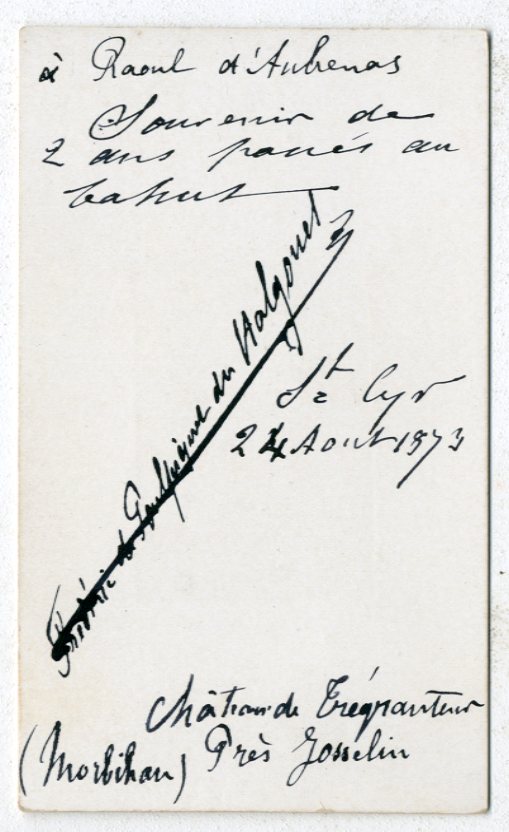 à Raoul d'Aubenas
Souvenir de
2 ans passés au
bahut
Frédéric de Poulpiquet du Halgouet
St Cyr
24 Aout 1873
Château de Trégranteur
Près Josselin
(Morbihan)